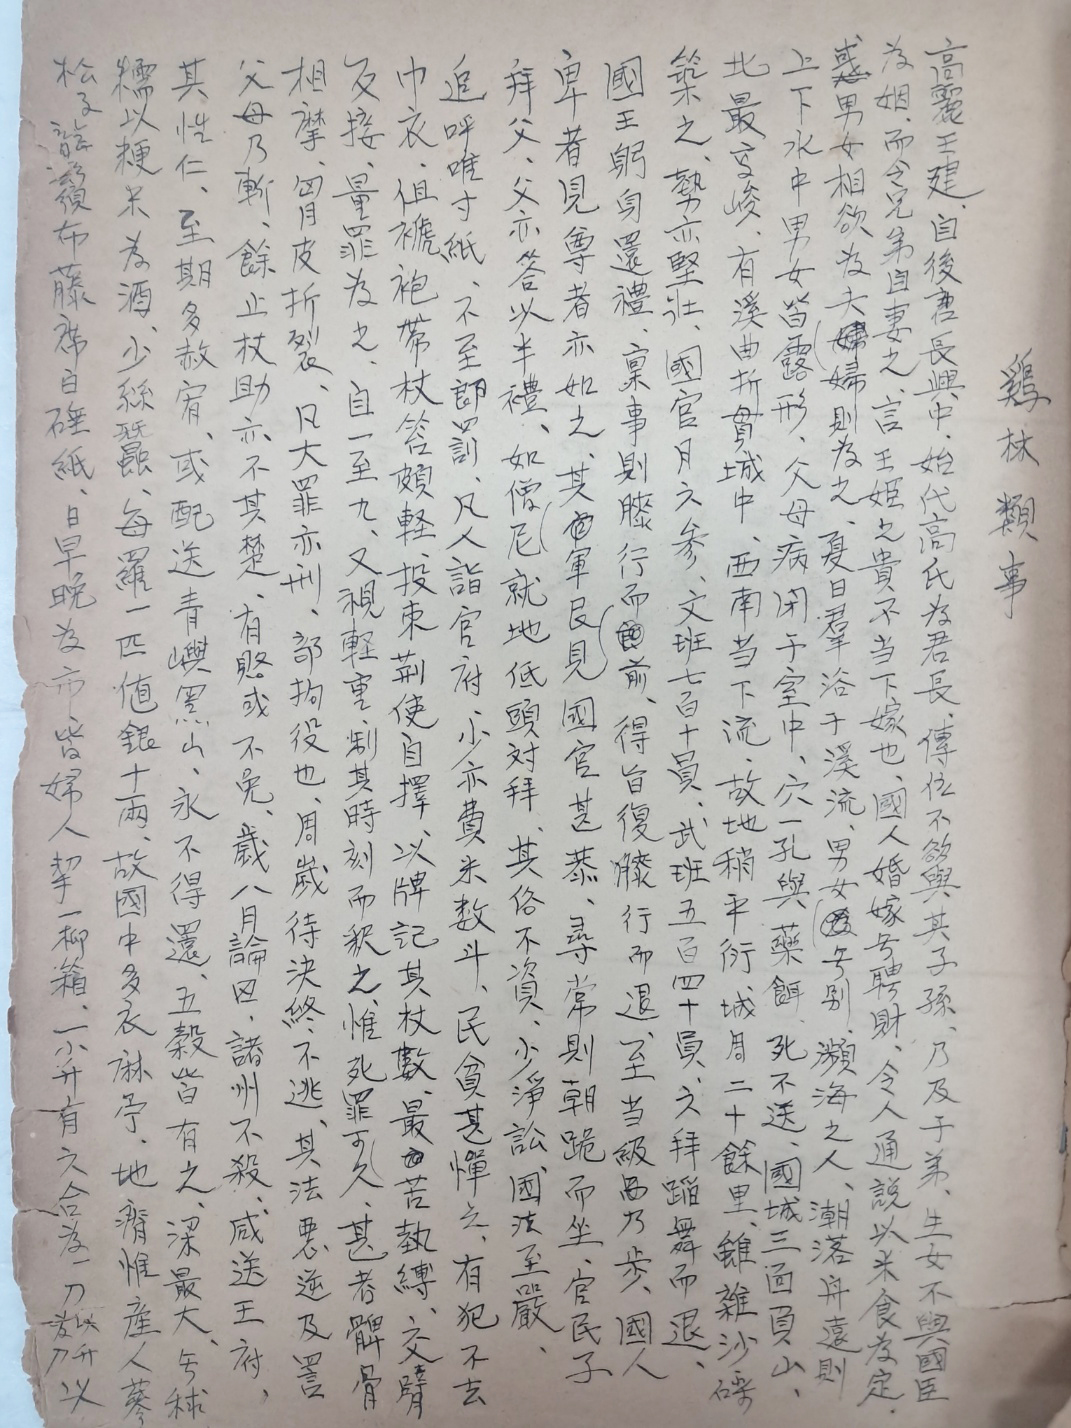 鷄林類事
高麗王建、自後唐長興中、始代高氏為君長、傳位不欲與其子孫、乃及于弟、生女不與國臣
為姻、而令兄弟自妻之、言王姬之貴不当下嫁也、國人婚嫁无聘財、令人通説以米食為定、
或男女相欲為夫婦則為之、夏日羣浴于溪流、男女无別、瀕海之人、潮落舟遠則
上下水中男女皆露形、父母病闭于室中、穴一孔與藥餌、死不送、國城三面負山、
北最高峻、有溪曲折貫城中、西南当下流、故地稍平衍、城周二十餘里、雖雜沙礫
築之、勢亦堅壮、國官月六参、文班七百十員、武班五百四十員、六拜蹈舞而退、
國王躬身還禮、稟事則膝行而前、得旨復膝行而退、至当級乃步、國人
卑者見尊者亦如之、其軍民見國官甚恭、尋常則朝跪而坐、官民子
拜父、父亦答以半禮、如僧尼就地低頭対拜、其俗不資、少淨訟、國法至嚴、
追呼唯寸紙、不至即罰、凡人詣官府、小亦費米数斗、民貧甚憚之、有犯不去
巾衣、但褫袍帯杖笞頗軽、投束荆使自擇、以牌記其杖數、最苦執縛、交臂
反接、量罪為之、自一至九、又視軽重、制其時刻而釈之、惟死罪可久、甚者髀骨
相摩、胷皮折裂、凡大罪亦刑、部拘役也、周歲待決終不逃、其法悪逆及詈
父母乃斬、餘止杖肋亦不甚楚、有賂或不免、歲八月論囚、諸州不殺、咸送王府、
其性仁、至期多赦宥、或配送青嶼黑山、永不得還、五穀皆有之、梁最大、无秫
糯以粳米為酒、少絲蠶、每羅一匹値銀十両、故國中多衣麻苧、地瘠惟産人蔘
松子龍鬚布藤席白硾紙、日早晩為市皆婦人挈一柳箱、一小升有六合為一刀以升為刀以